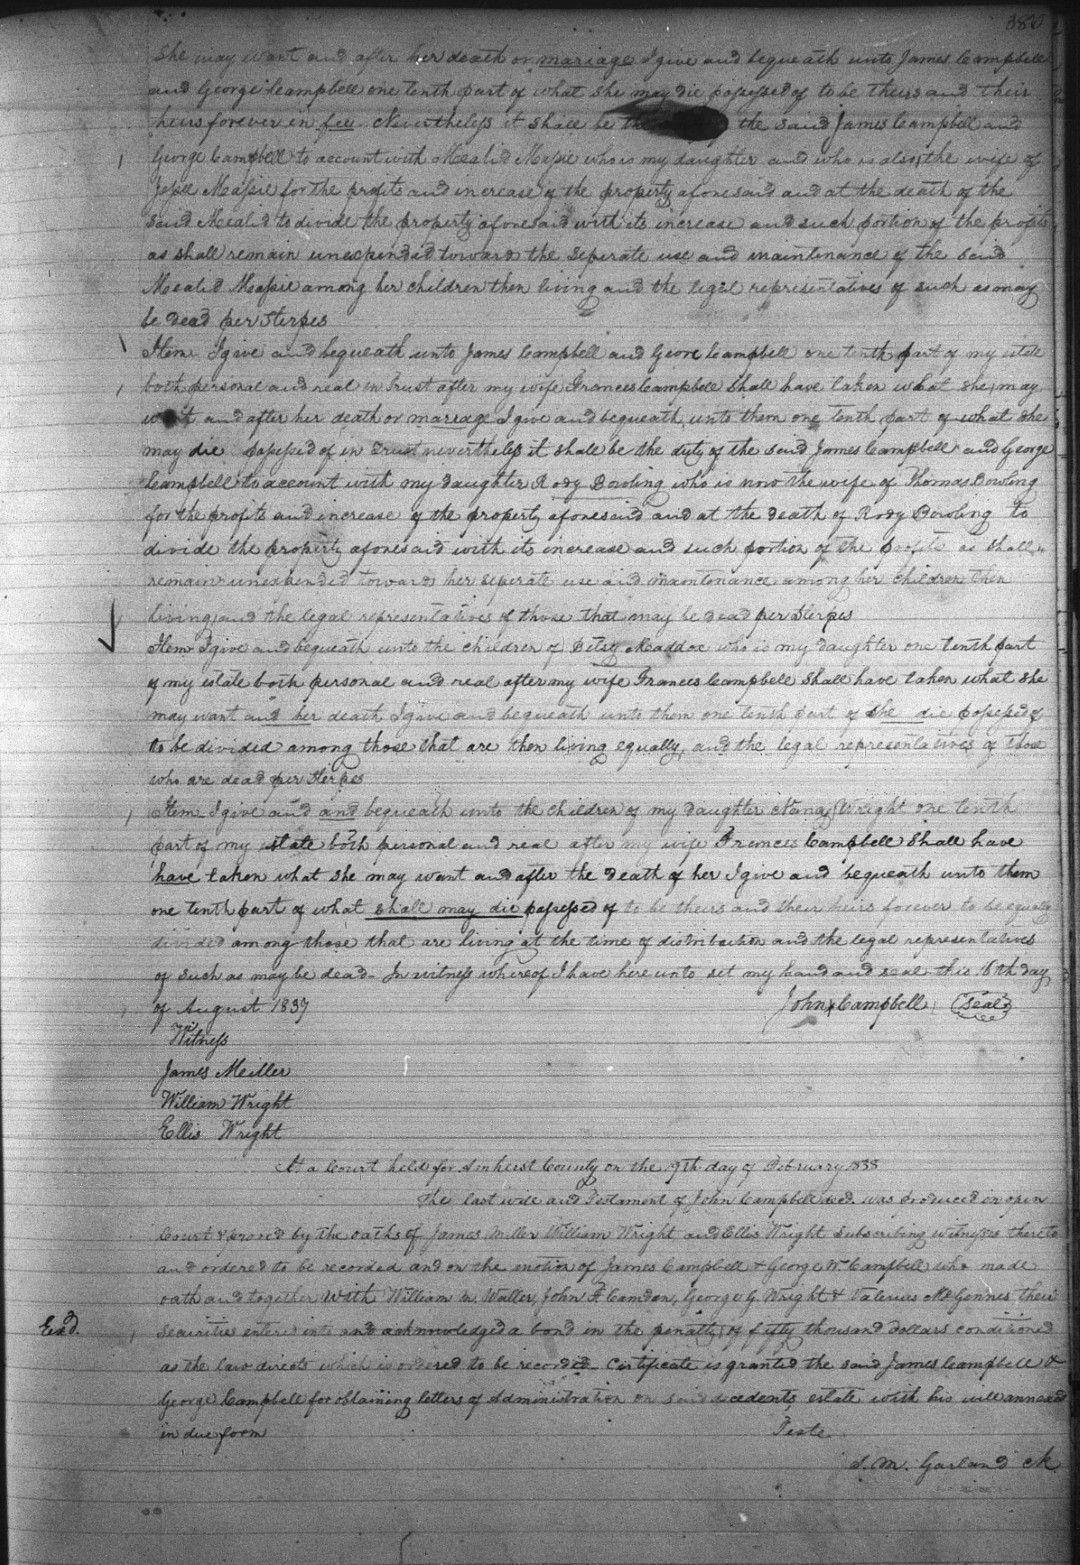 380
She may want and after her death or mariage I give and bequeath unto James Campbell
and George Campbell one tenth part of what she may die possessed of to be theirs and their
heirs forever in fee Nevertheless it shall be the the said James Campbell and
George Campbell to account with Mealid Massie who is my daughter and who is also the wife of
Jessee Massie for the profits and increase of the property aforesaid and at the death of the
said Mealid to divide the property aforesaid with its increase and such portion of the profits
as shall remain unexpended toward the seperate use and maintenance of the said
Mealid Massie among her children then living and the legal representatives of such as may
be dead per Sterpes
Item I give and bequeath unto James Campbell and Geore Campbell one tenth part of my estate
both personal and real in Trust after my wife Frances Campbell shall have taken what she may
want and after her death or mariage I give and bequeath unto them one tenth part of what she
may die possessed of in Trust nevertheless it shall be the duty of the said James Campbell and George
Campbell to account with my daughter Rody Bowling who is now the wife of Thomas Bowling
for the profits and increase of the property aforesaid and at the death of Rody Bowling to
divide the property aforesaid with its increase and such portion of the profits as shall
remain unexpended towards her seperate use and maintenance among her children then
living and the legal representatives of those that may be dead per Sterpes
Item I give and bequeath unto the children of Betsy Maddox who is my daughter one tenth part
of my estate both personal and real after my wife Frances Campbell shall have taken what she
may want and her death I give and bequeath unto them one tenth part of she die possessed of
to be divided among those that are then living equally, and the legal representatives of those
who are dead per Sterpes
Item I give and and bequeath unto the children of my daughter Nancy Wright one tenth
part of my estate both personal and real after my wife Frances Campbell shall have
have taken what she may want and after the death of her I give and bequeath unto them
one tenth part of what shall may die possessed of to be theirs and their heirs forever to be equally
divided among those that are living at the time of distribution and the legal representatives
of such as may be dead - In witness whereof I have here unto set my hand and seal this 16th day
of August 1837 John x Campbell (Seal)
Witness
James Meiller
William Wright
Ellis Wright
At a Court held for Amherst County on the 9th day of February 1838
The last will and Testament of John Campbell decd. was produced in open
Court & proved by the oaths of James Miller William Wright and Ellis Wright Subscribing witnesses thereto
and ordered to be recorded and on the motion of James Campbell & George W Campbell who made
oath and together with William M. Waller, John F. Camden, George G. Wright & Valerius McGinnis their
Exad.
securities entered into and acknowledged a bond in the penalty of fifty thousand dollars conditioned
as the law directs which is ordered to be recorded - Certificate is granted the said James Campbell &
George Campbell for obtaining letters of Administration on said decedents estate with his will annexed
in due form Teste
S. M. Garland Clk